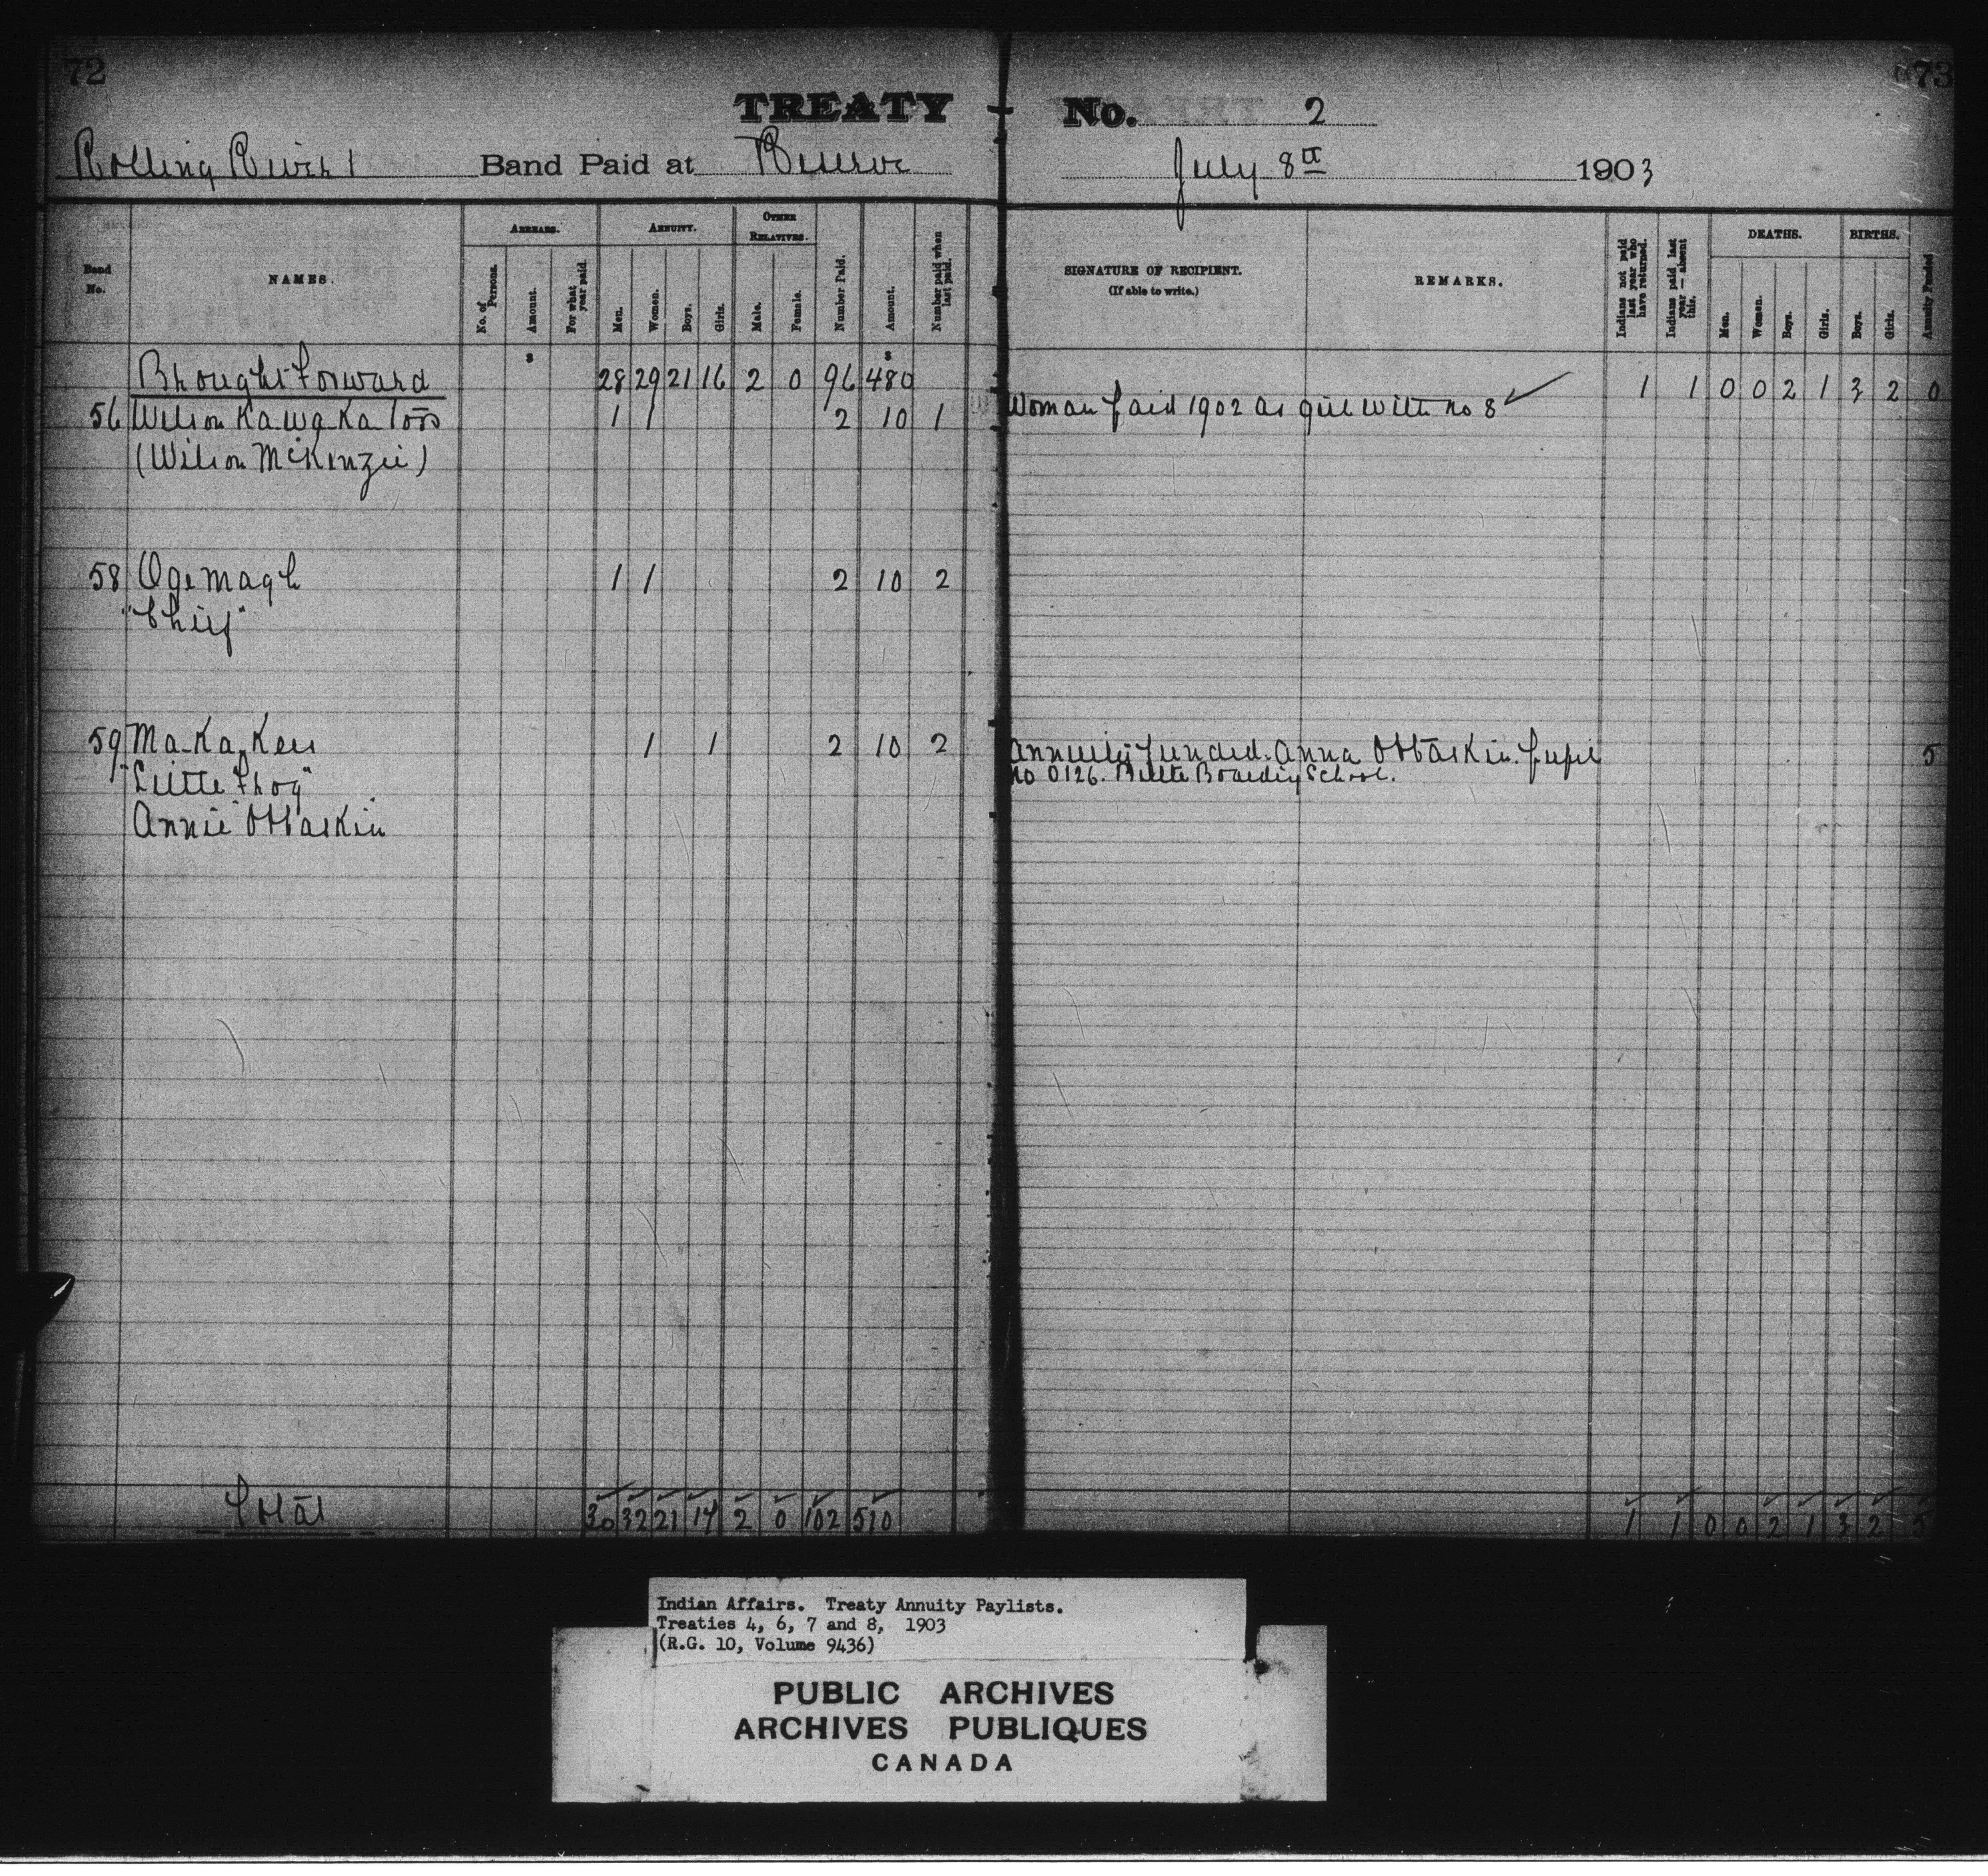 72
73
TREATY No. 2
Rolling River Band Paid at Reserve July 8th 1903
Band No.
NAMES.
ARREARS.
No. of Persons.
Amount.
For what year paid.
ANNUITY.
Men.
Women.
Boys.
Girls.
OTHER RELATIVES.
Male.
Female.
Number Paid.
Amount.
Number paid when last paid.
SIGNATURE OF RECIPIENT.
(If able to write.)
REMARKS.
Indians not paid last year who have returned.
Indians paid last year — absent this.
DEATHS.
Men.
Women.
Boys.
Girls.
BIRTHS.
Boys.
Girls.
Annuity Funded
$ $
Brought Forward 28 29 21 16 2 0 96 480 1 1 0 0 2 1 3 2 0
56 Wilson Ka-wa-Ka-toos 1 1 2 10 1 Woman paid 1902 as girl with no 8 ✓
(Wilson McKenzie)
58 Ogemagh 1 1 2 10 2
"Chief"
59 Ma-Ka-Kees 1 1 2 10 2 Annuity funded. Anna Ottaskin. pupil 5
"Little Frog" no 0126. Birtle Boarding School.
Annie Ottaskin
Total 30 32 21 17 2 0 102 510 1 1 0 0 2 1 3 2 5
Indian Affairs. Treaty Annuity Paylists.
Treaties 4, 6, 7 and 8, 1903
(R.G. 10, Volume 9436)
PUBLIC ARCHIVES
ARCHIVES PUBLIQUES
CANADA